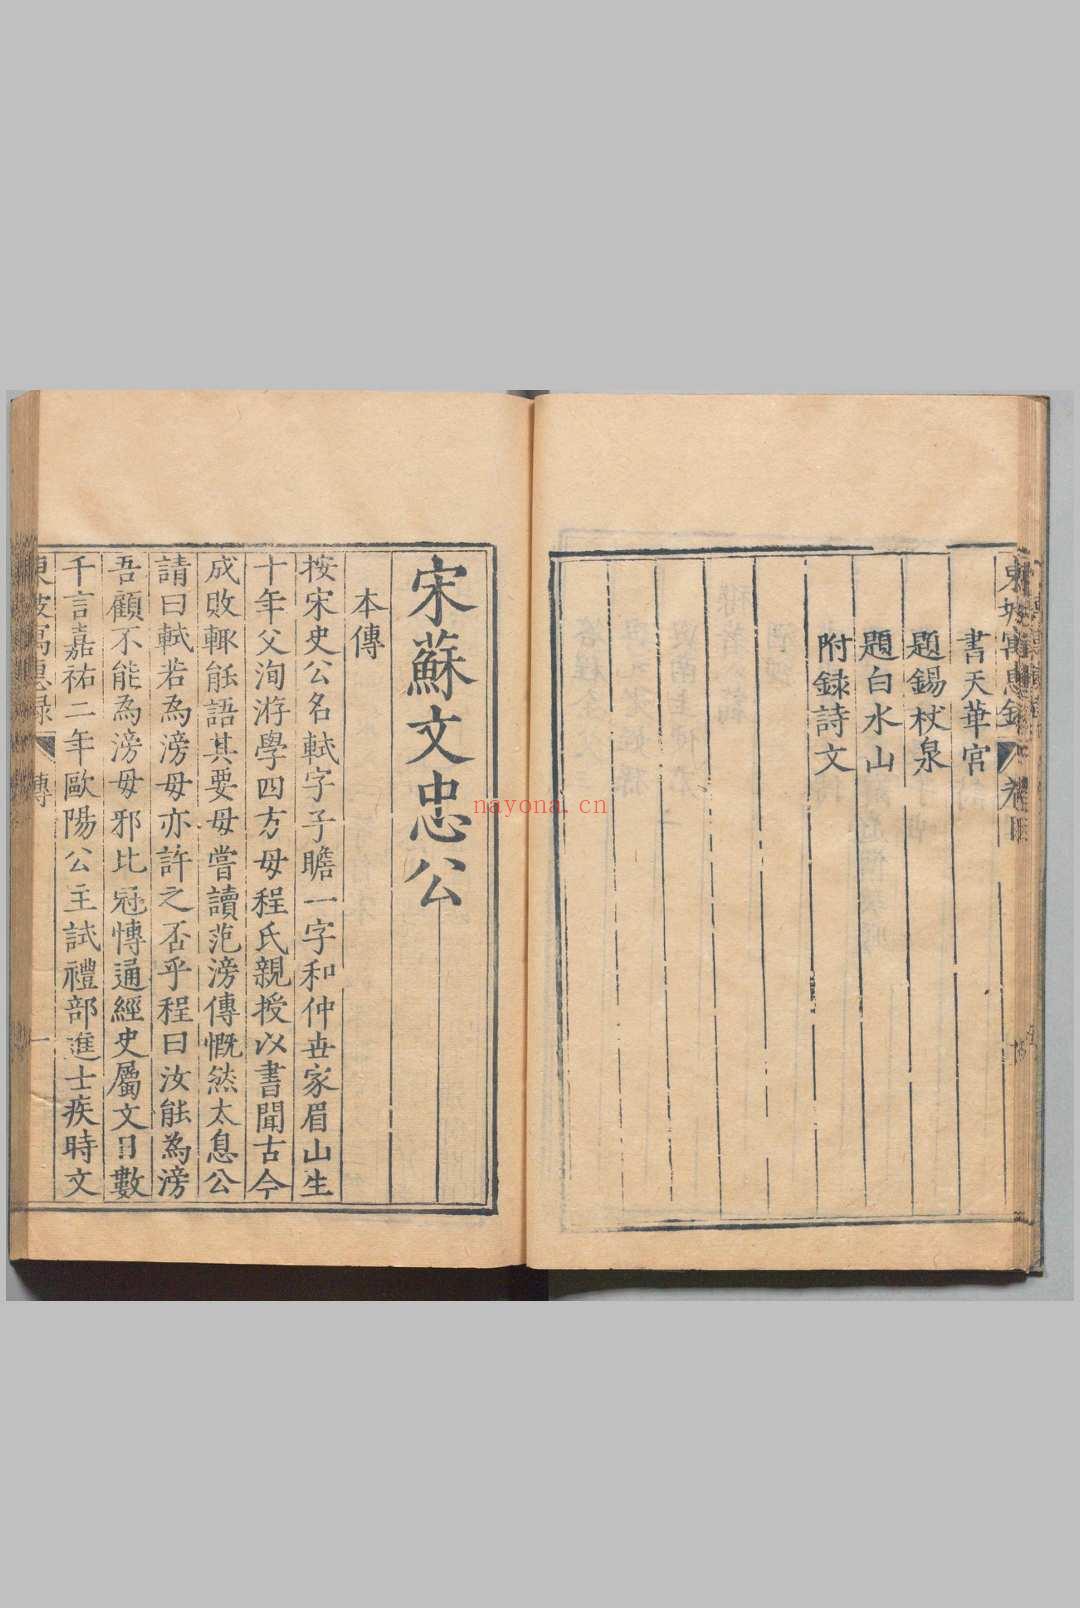 書天華宮
題錫杖泉
題白水山
附録詩文
宋蘇文忠公
本傳
按宋史公名軾字子瞻一字和仲世家眉山生
十年父洵游學四方母程氏親授以書聞古今
成敗輒能語其要母嘗讀范滂傳慨然太息公
請曰軾若為滂母亦許之否乎程曰汝能為滂
吾顧不能為滂母邪比冠愽通經史屬文日數
千言嘉祐二年歐陽公主試禮部進士疾時文
東坡寓惠録 傳 一
nayona.cn